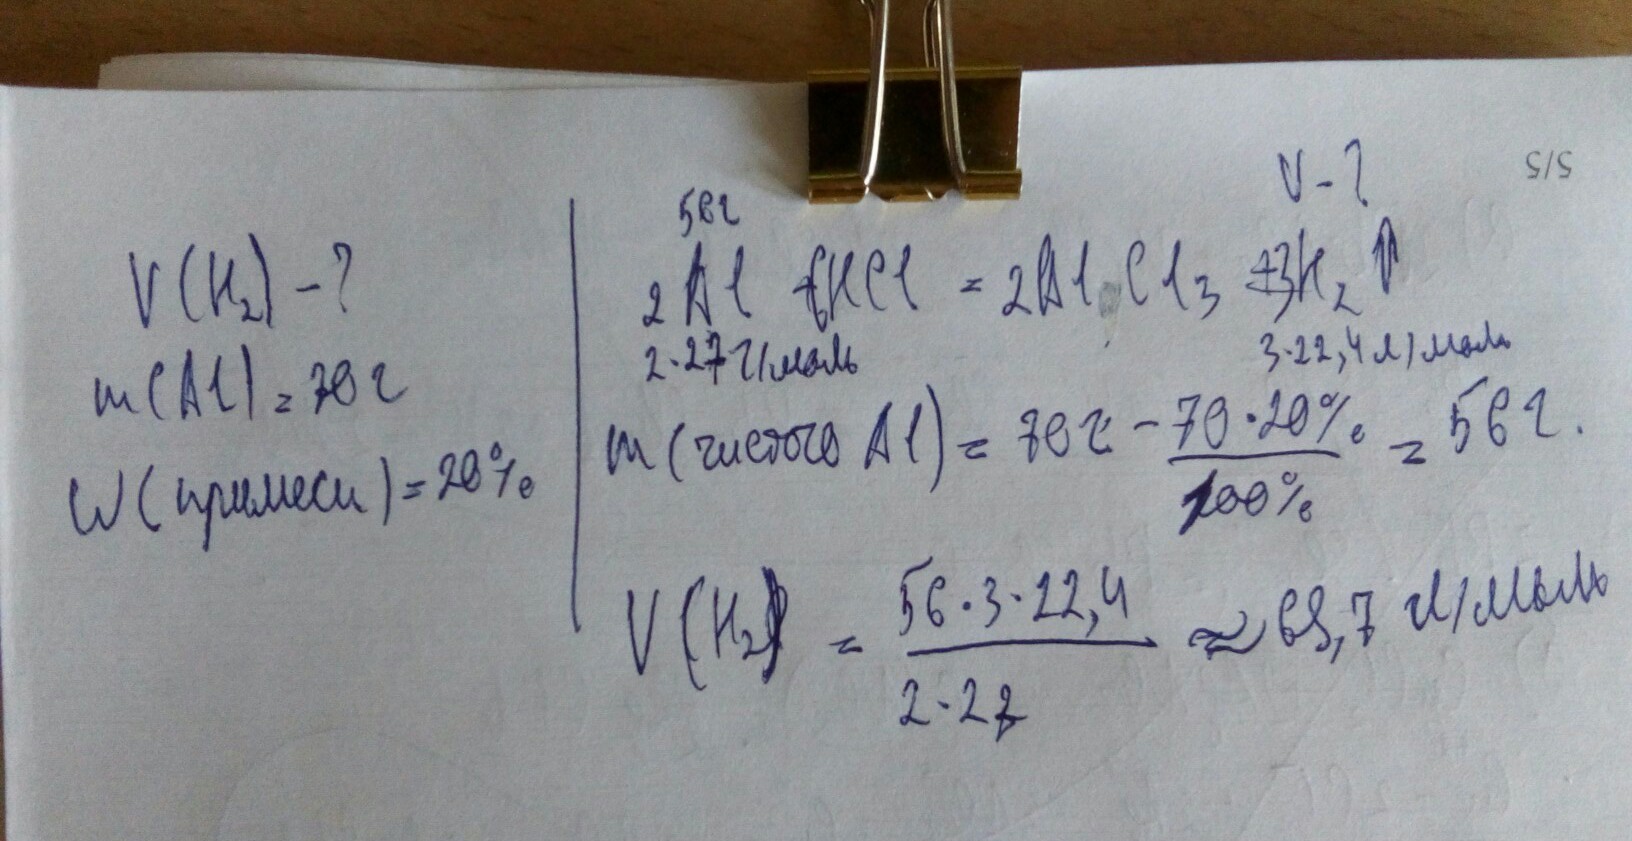 5/5
V(H₂) - ?
m(Al) = 70 г
W(примеси) = 20%
56 г
V - ?
2Al + 6HCl = 2AlCl₃ + 3H₂↑
2·27 г/моль
3·22,4 л/моль
m(чистого Al) = 70 г - 70·20% / 100% = 56 г.
V(H₂) = 56·3·22,4 / 2·27 ≈ 69,7 л/моль